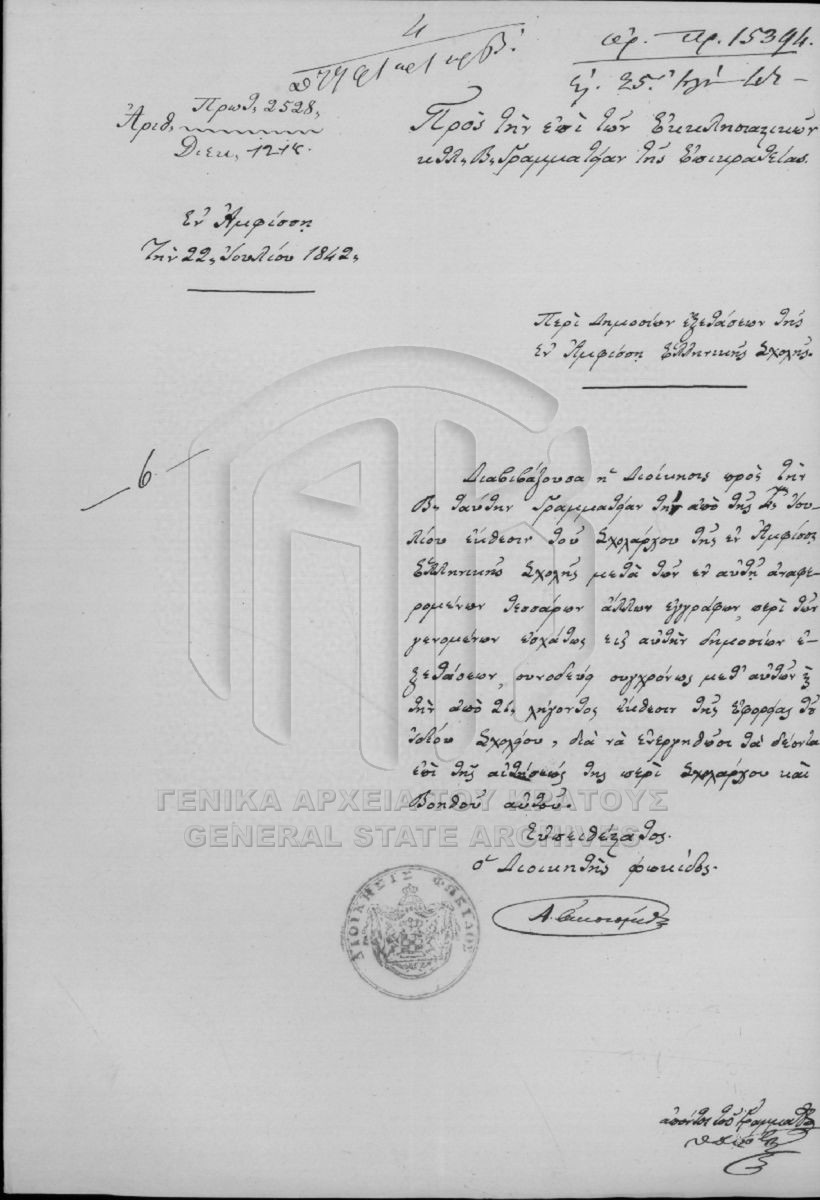 4
ἀρ. πρ. 15394.
Πρωθ, 2528,
Ἀριθ,
Διεκ, 1218.
Πρὸς τὴν ἐπὶ τῶν Ἐκκλησιαστικῶν
κτλ, Β, Γραμματείαν τῆς Ἐπικρατείας.
Ἐν Ἀμφίσσῃ
Τὴν 22, Ἰουλίου 1842,
Περὶ Δημοσίων ἐξετάσεων τῆς
ἐν Ἀμφίσσῃ Ἑλληνικῆς Σχολῆς.
6
Διαβιβάζουσα ἡ Διοίκησις πρὸς τὴν
Β, ταύτην Γραμματείαν τὴν ἀπὸ τῆς Ἰου-
λίου ἔκθεσιν τοῦ Σχολάρχου τῆς ἐν Ἀμφίσσῃ
Ἑλληνικῆς Σχολῆς μετὰ τῶν ἐν αὐτῇ ἀναφε-
ρομένων τεσσάρων ἄλλων ἐγγράφων, περὶ τῶν
γενομένων ἐσχάτως εἰς αὐτὴν δημοσίων ἐ-
ξετάσεων, συνοδεύει συγχρόνως μετ' αὐτῶν
τὴν ἀπὸ 21, λήγοντος ἔκθεσιν τῆς Ἐφορείας τοῦ
Σχολείου, διὰ νὰ ἐνεργηθῶσι τὰ δέοντα
ἐπὶ τῆς αἰτήσεώς της περὶ Σχολάρχου καὶ
Βοηθοῦ αὐτοῦ.
Εὐπειθέστατος.
ὁ Διοικητὴς Φωκίδος.
ΔΙΟΙΚΗΣΙΣ ΦΩΚΙΔΟΣ
ΓΕΝΙΚΑ ΑΡΧΕΙΑ ΤΟΥ ΚΡΑΤΟΥΣ
GENERAL STATE ARCHIVES